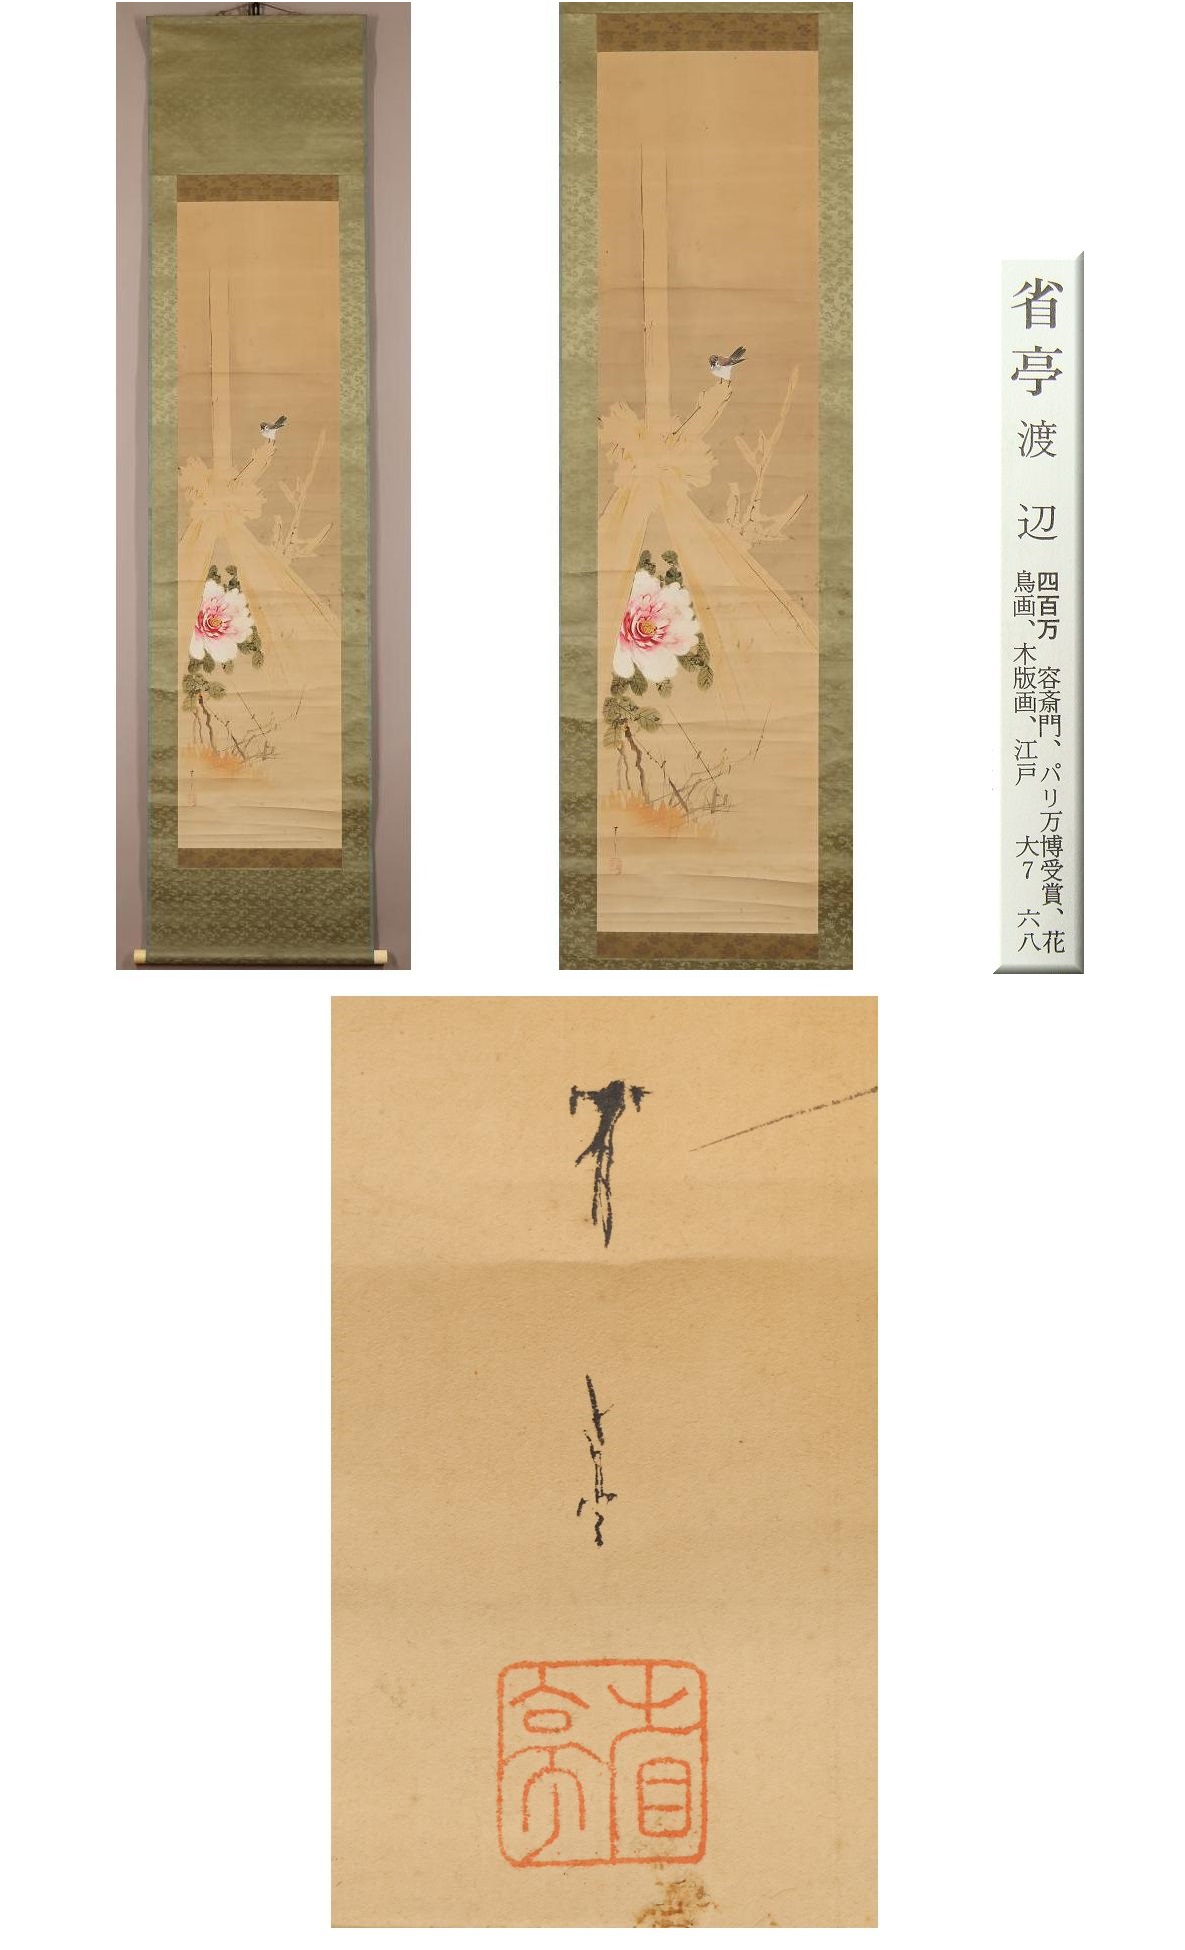 省亭 渡辺 四百万 容斎門、パリ万博受賞、花
鳥画、木版画、江戸 大7 六八
省亭
省亭